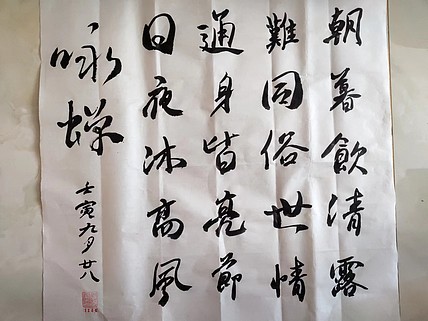 朝暮飲清露
難同俗世情
通身皆亮節
日夜沐高風
咏蟬
壬寅九月廿八